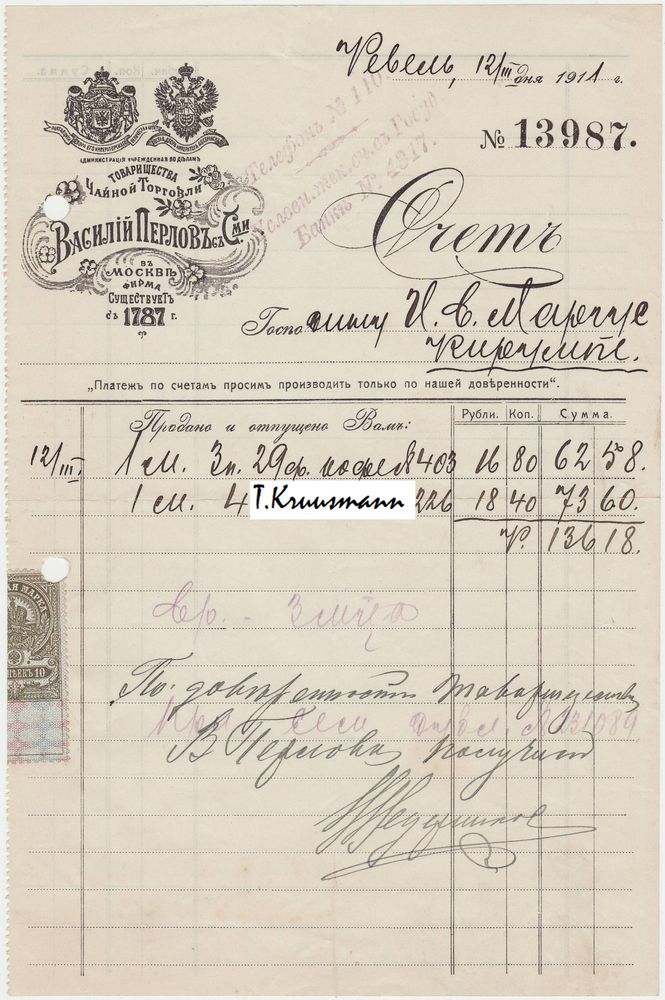 Ревель, 12/III дня 1911 г.
№ 13987.
Телефонъ № 110
Условн. тек. сч. въ Госуд.
Банкѣ № 4217.
АДМИНИСТРАЦІЯ УЧРЕЖДЕННАЯ ПО ДѢЛАМЪ
ТОВАРИЩЕСТВА
ЧАЙНОЙ ТОРГОВЛИ
ВАСИЛІЙ ПЕРЛОВЪ СЪ С-МИ
ВЪ
МОСКВѢ
ФИРМА
СУЩЕСТВУЕТЪ
съ 1787 г.
Счетъ
Господину И. В. Марчус
„Платежъ по счетамъ просимъ производить только по нашей довѣренности“.
Продано и отпущено Вамъ: Рубли. Коп. Сумма.
12/III. 1 см. 3 п. 29 ф. кофе № 403 16 80 62 58.
1 см. 4 226 18 40 73 60.
T.Kruusmann
Р. 136 18.
Ср. - 3 мѣсяца
МАРКА
КОПѢЕКЪ 10
По довѣренности Товарищества
В Перловъ получилъ